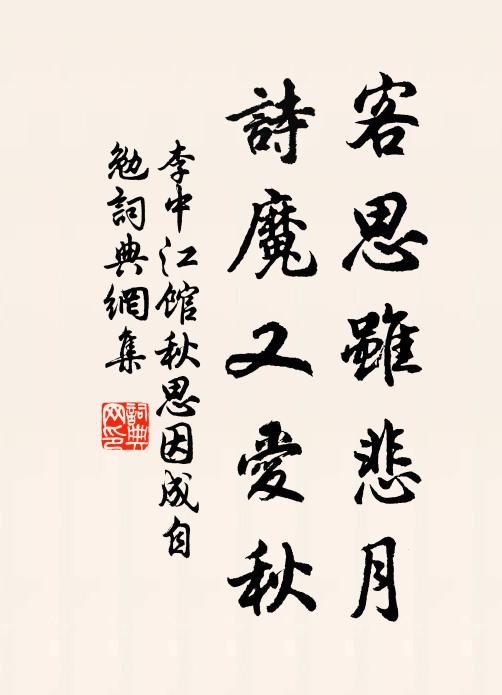 客思雖悲月
詩魔又愛秋
李中江館秋思因成自
勉詞典網集
詞典
网印